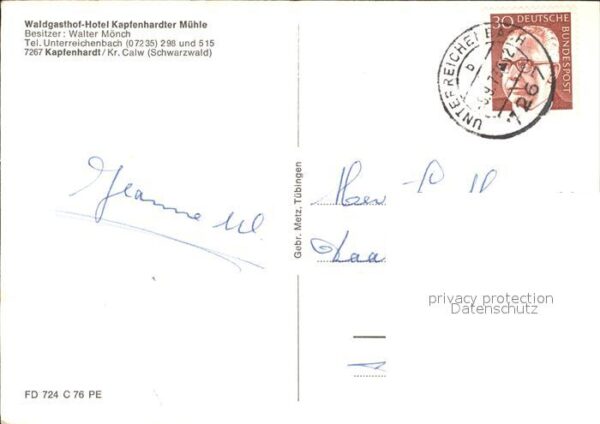 Waldgasthof-Hotel Kapfenhardter Mühle
Besitzer: Walter Mönch
Tel. Unterreichenbach (07235) 298 und 515
7267 Kapfenhardt/Kr. Calw (Schwarzwald)
30 DEUTSCHE
BUNDESPOST
UNTERREICHENBACH
Jeanne W.
Gebr. Metz, Tübingen
privacy protection
Datenschutz
FD 724 C 76 PE